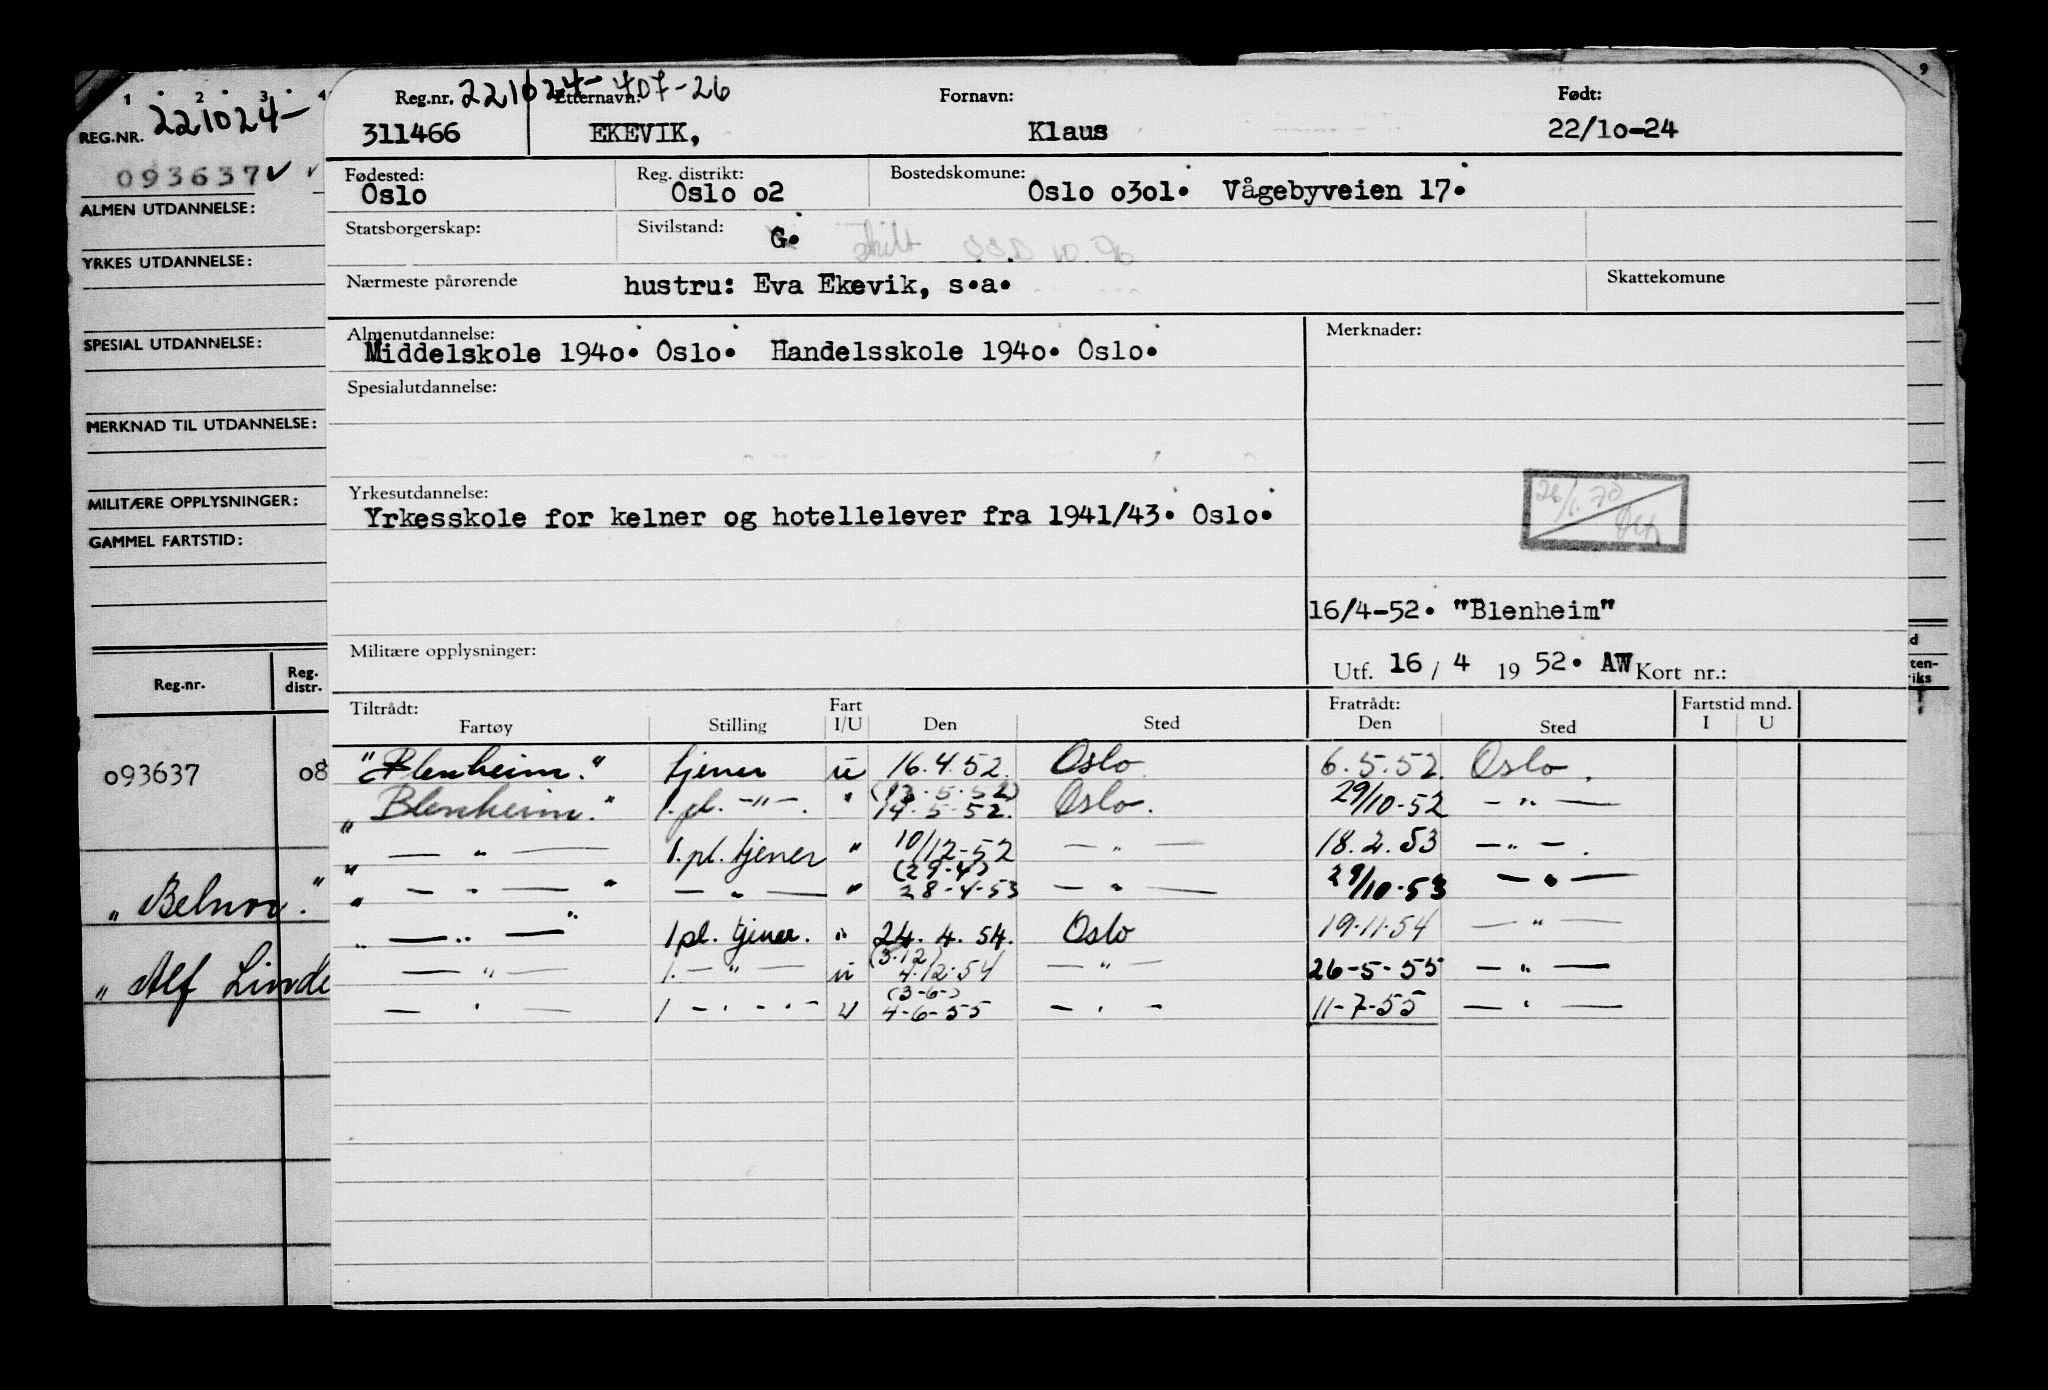 1 2 3 4
REG.NR. 221024-
093637 ✓ ✓
ALMEN UTDANNELSE:
YRKES UTDANNELSE:
SPESIAL UTDANNELSE:
MERKNAD TIL UTDANNELSE:
MILITÆRE OPPLYSNINGER:
GAMMEL FARTSTID:
Reg.nr. Reg. distr.
093637 08
" Belnor."
" Alf Linde
Reg.nr. 221024-407-26 Etternavn: Fornavn: Født:
311466 EKEVIK, Klaus 22/10-24
Fødested: Reg. distrikt: Bostedskomune:
Oslo Oslo o2 Oslo o3o1. Vågebyveien 17.
Statsborgerskap: Sivilstand: G. skilt
Nærmeste pårørende hustru: Eva Ekevik, s.a. Skattekomune
Almenutdannelse: Merknader:
Middelskole 194o. Oslo. Handelsskole 194o. Oslo.
Spesialutdannelse:
Yrkesutdannelse:
Yrkesskole for kelner og hotellelever fra 1941/43. Oslo.
26/1.70
16/4-52. "Blenheim"
Militære opplysninger: Utf. 16 / 4 19 52. AW Kort nr.:
Tiltrådt: Fart Fratrådt: Fartstid mnd.
Fartøy Stilling I/U Den Sted Den Sted I U
"Blenheim." tjener u 16.4.52. Oslo. 6.5.52. Oslo.
(13.5.52)
"Blenheim." 1.pl. -"-. " 14.5.52. Oslo. 29/10-52 -"-
" - " - " 1.pl. tjener " 10/12-52 - " - 18.2.53 -"-.
(29-4)
" - " - " - " - " 28-4-53 - " - 29/10-53 - " -
" - " - " 1pl. tjener. " 24.4.54. Oslo 19.11.54 - " -
(3.12)
- " - 1. - " - u 4.12.54 - " - 26-5-55 - " -
(3-6-)
- " - 1 - " - u 4-6-55 - " - 11-7-55 - " -
9
d
ten-
iks